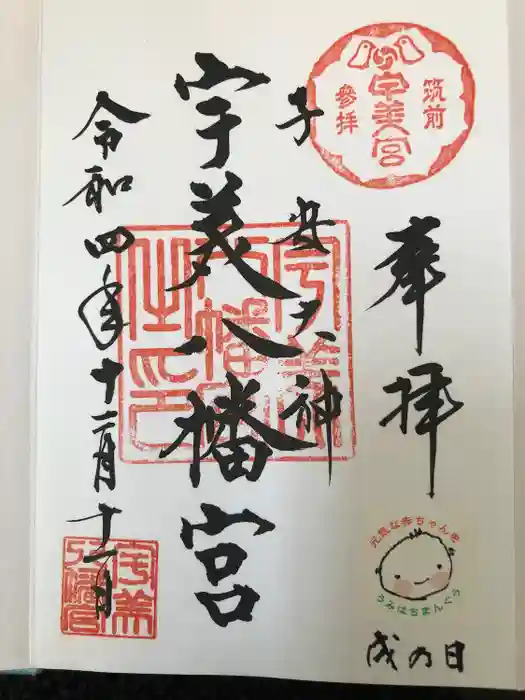 筑前
宇美宮
參拝
奉拝
元気な赤ちゃんを
うみはちまんぐう
戌の日
子安大神
宇美八幡宮
宇美
八幡宮
之印
令和四年十二月十一日
宇美
八幡宮